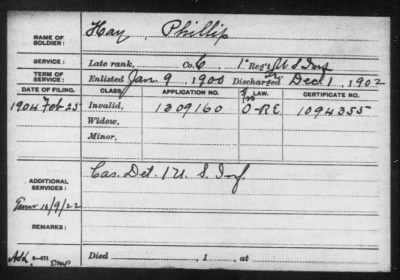 NAME OF SOLDIER: Hay, Phillip
SERVICE: Late rank, Co. C, 1" Reg't U S Inf
TERM OF SERVICE: Enlisted Jan 9, 1900 Discharged Dec 1, 1902
DATE OF FILING. CLASS. APPLICATION NO. LAW. CERTIFICATE NO.
1904 Feb 25 Invalid, 1309160 1094355
Widow,
Minor,
ADDITIONAL SERVICES: Cas. Det. 1 U. S. Inf.
REMARKS:
Died , 1 , at